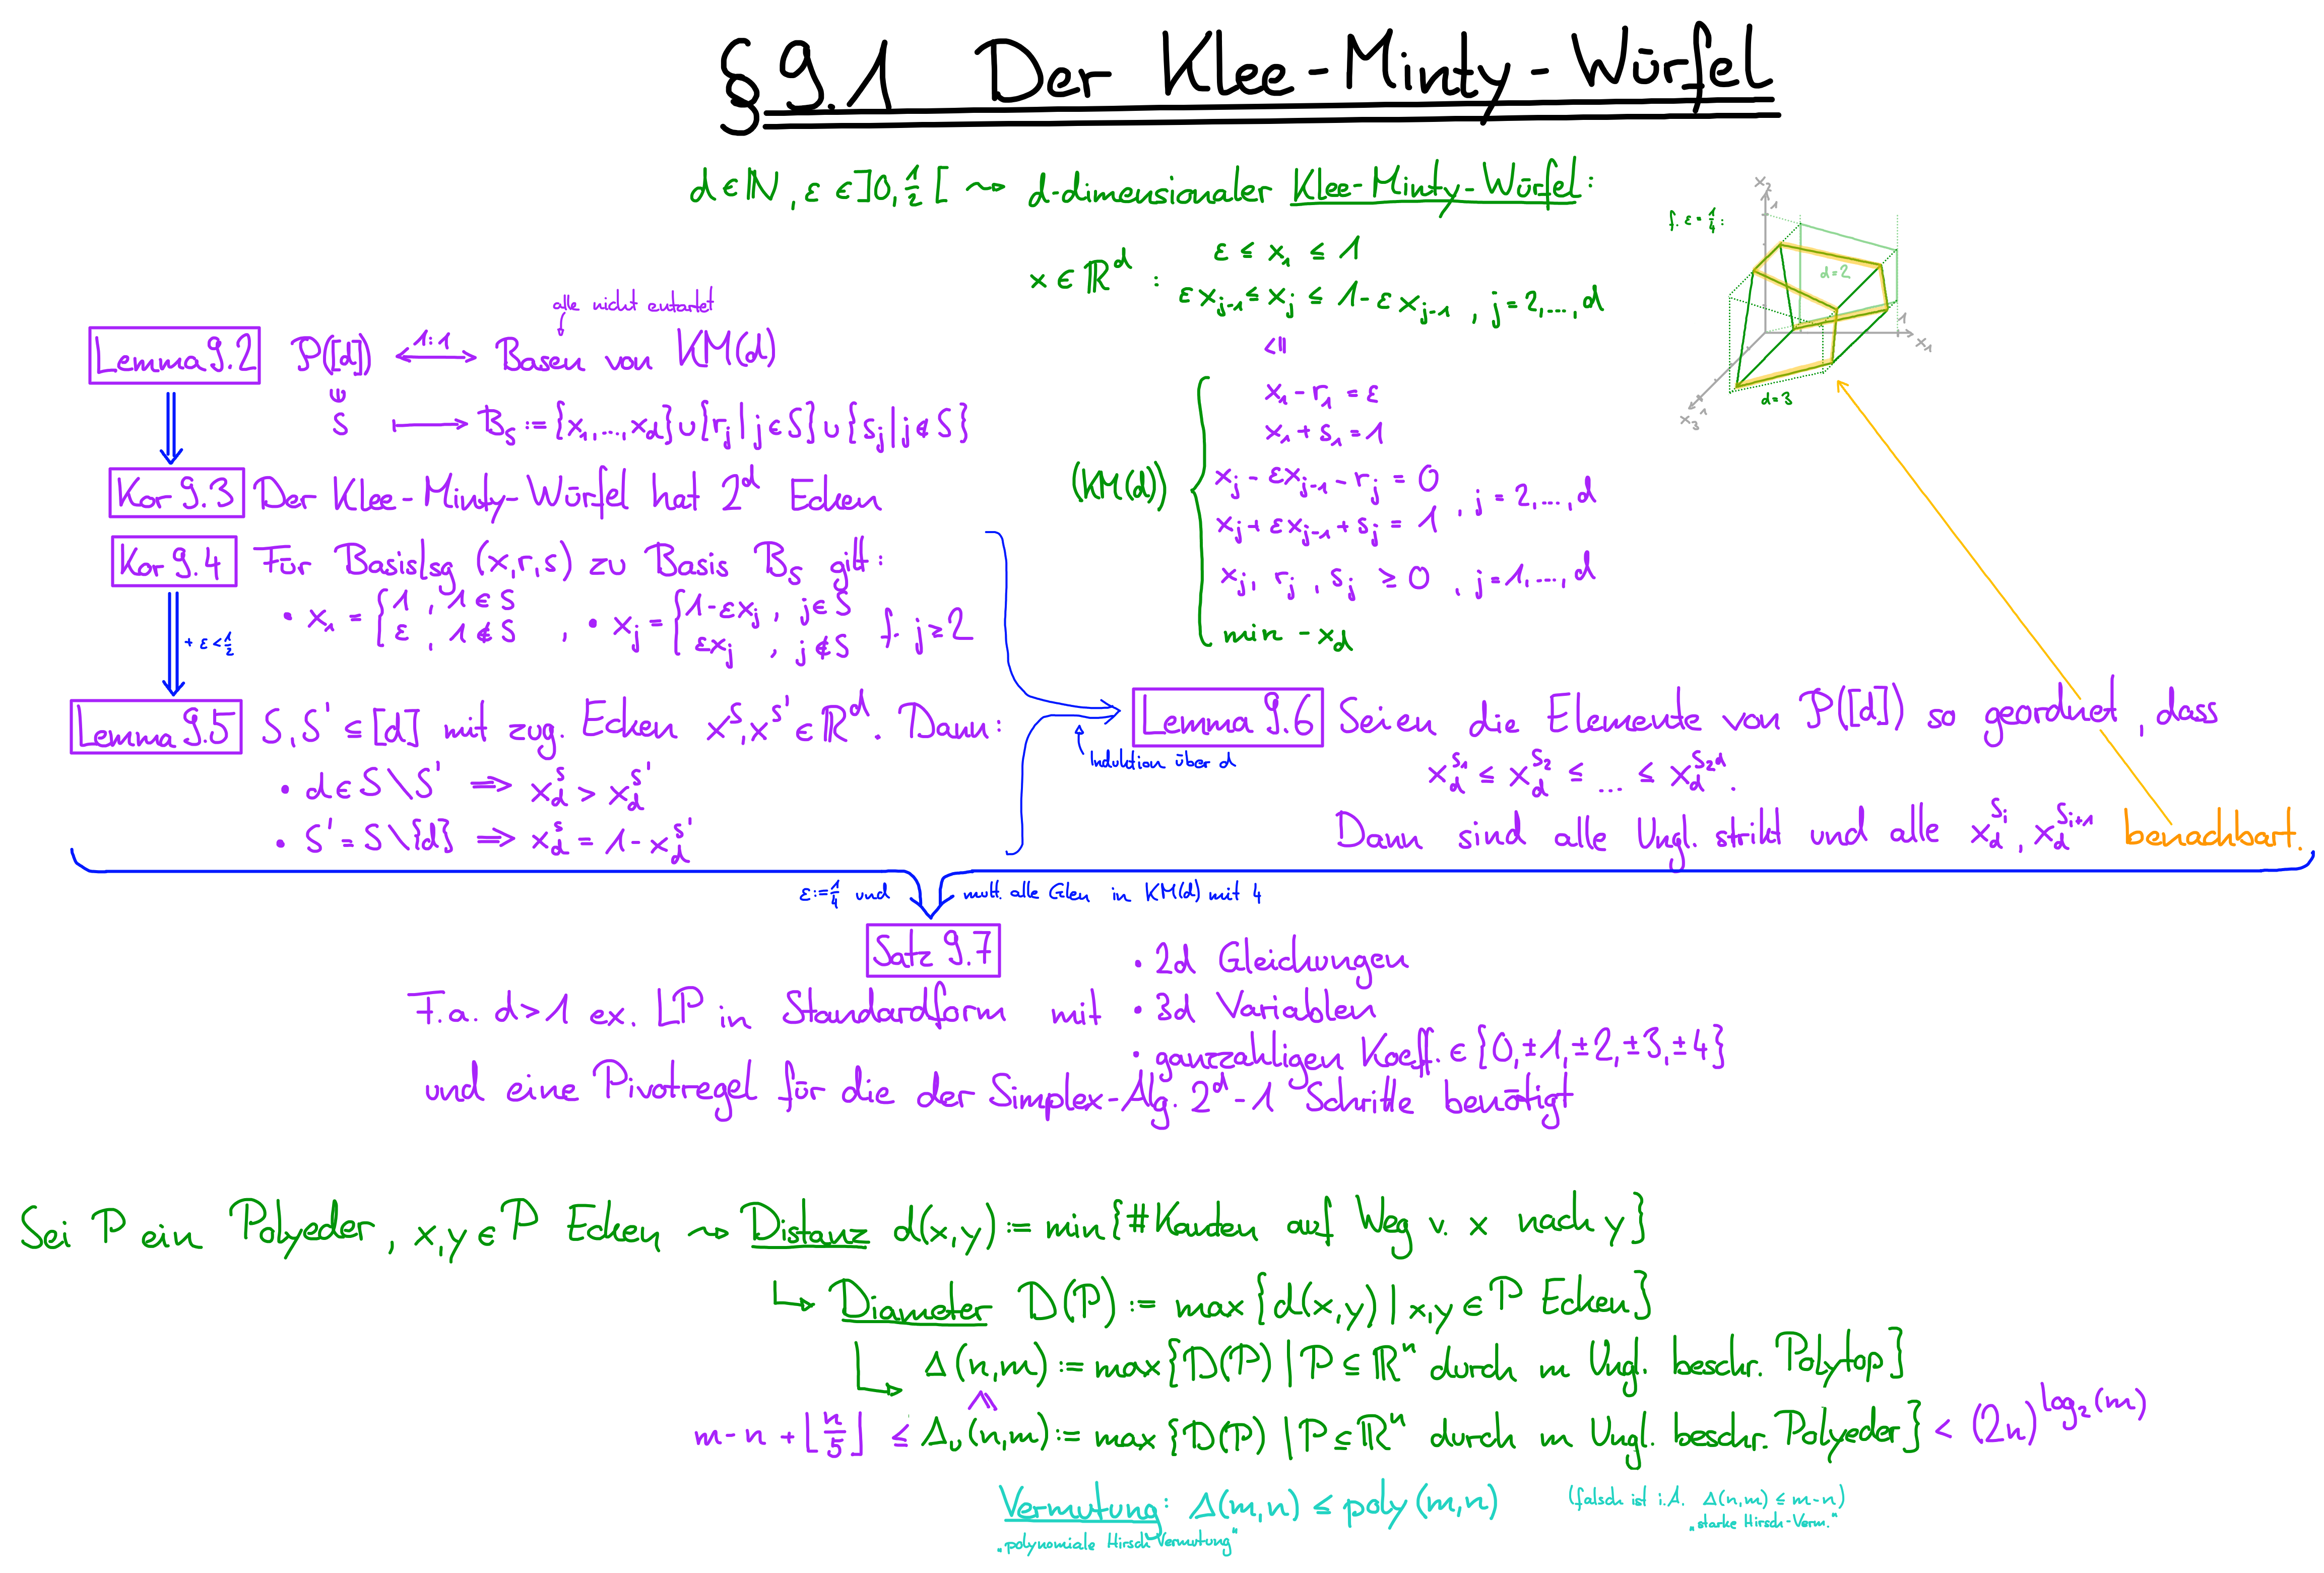 § 9.1 Der Klee-Minty-Würfel
d ∈ ℕ, ε ∈ ]0, 1/2 [ ⤳ d-dimensionaler Klee-Minty-Würfel:
x ∈ ℝ^d : ε ≤ x_1 ≤ 1
ε x_{j-1} ≤ x_j ≤ 1 - ε x_{j-1} , j = 2,...,d
f. ε = 1/4 :
x_2
1
d=2
1
x_1
1
x_3
d=3
(KM(d))
x_1 - r_1 = ε
x_1 + s_1 = 1
x_j - εx_{j-1} - r_j = 0
x_j + εx_{j-1} + s_j = 1 , j = 2,...,d
x_j, r_j, s_j ≥ 0 , j = 1,...,d
min -x_d
alle nicht entartet
Lemma 9.2 P([d]) ⟷ 1:1 Basen von KM(d)
S ⟼ B_S := {x_1,...,x_d} ∪ {r_j | j ∈ S} ∪ {s_j | j ∉ S}
Kor 9.3 Der Klee-Minty-Würfel hat 2^d Ecken
Kor 9.4 Für Basislsg (x,r,s) zu Basis B_S gilt:
• x_1 = { 1 , 1 ∈ S ; ε , 1 ∉ S , • x_j = { 1-εx_j , j ∈ S ; εx_j , j ∉ S f. j ≥ 2
+ ε < 1/2
Lemma 9.5 S, S' ⊆ [d] mit zug. Ecken x^S, x^{S'} ∈ ℝ^d. Dann:
• d ∈ S \ S' ⟹ x_d^S > x_d^{S'}
• S' = S \ {d} ⟹ x_d^S = 1 - x_d^{S'}
Induktion über d
Lemma 9.6 Seien die Elemente von P([d]) so geordnet, dass
x_d^{S_1} ≤ x_d^{S_2} ≤ ... ≤ x_d^{S_{2^d}}.
Dann sind alle Ungl. strikt und alle x_d^{S_i}, x_d^{S_{i+1}} benachbart.
ε := 1/4 und mult. alle Glen in KM(d) mit 4
Satz 9.7
F.a. d > 1 ex. LP in Standardform mit
• 2d Gleichungen
• 3d Variablen
• ganzzahligen Koeff. ∈ {0, ±1, ±2, ±3, ±4}
und eine Pivotregel für die der Simplex-Alg. 2^d - 1 Schritte benötigt
Sei P ein Polyeder, x,y ∈ P Ecken ⤳ Distanz d(x,y) := min{#Kanten auf Weg v. x nach y}
↳ Diameter D(P) := max{d(x,y) | x,y ∈ P Ecken}
↳ Δ(n,m) := max{D(P) | P ⊆ ℝ^n durch m Ungl. beschr. Polytop}
m - n + ⌊n/5⌋ ≤ Δ_u(n,m) := max{D(P) | P ⊆ ℝ^n durch m Ungl. beschr. Polyeder} < (2n)^{log_2(m)}
Vermutung: Δ(m,n) ≤ poly(m,n) (falsch ist i.A. Δ(n,m) ≤ m-n)
„polynomiale Hirsch Vermutung" „starke Hirsch-Verm."